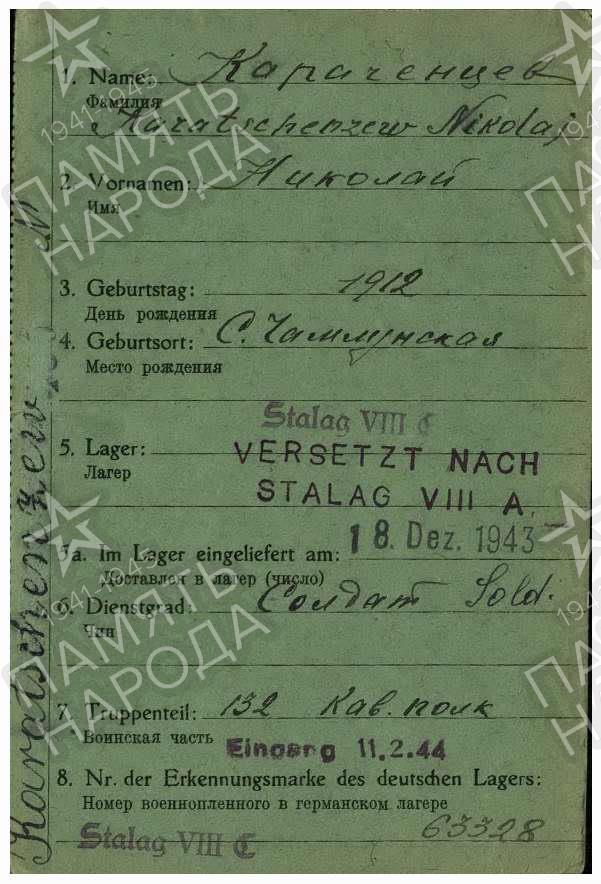 1. Name: Караченцев
Фамилия
Karatschenzew Nikolaj
2. Vornamen: Николай
Имя
3. Geburtstag: 1912
День рождения
4. Geburtsort: С. Чамлунская
Место рождения
Stalag VIII C
5. Lager: VERSETZT NACH
Лагер
STALAG VIII A.
18. Dez. 1943
5a. Im Lager eingeliefert am:
Доставлен в лагер (число)
6. Dienstgrad: Солдат Sold.
Чин
7. Truppenteil: 132 Кав. полк
Воинская часть
Eingang 11.2.44
8. Nr. der Erkennungsmarke des deutschen Lagers:
Номер военнопленного в германском лагере
63328
Stalag VIII C
Karatschenzew N
1941-1945
ПАМЯТЬ
НАРОДА
1941-1945
ПАМЯТЬ
НАРОДА
1941-1945
ПАМЯТЬ
НАРОДА
1941-1945
ПАМЯТЬ
НАРОДА